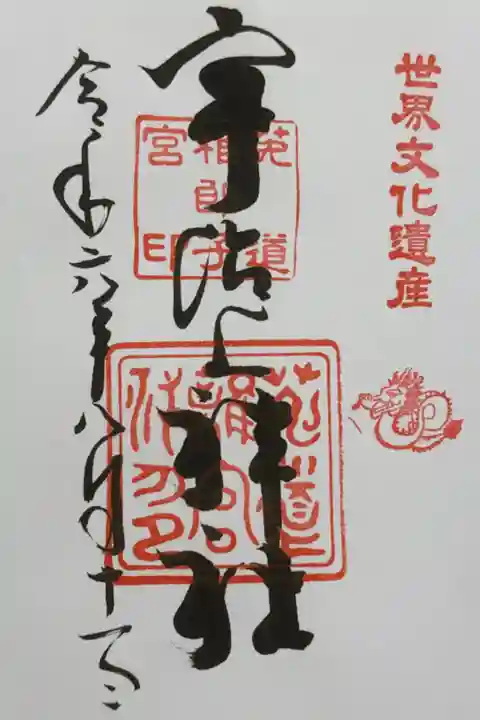 世界文化遺産
宇治上神社
菟道
稚郎子
宮印
令和六年八月十一日